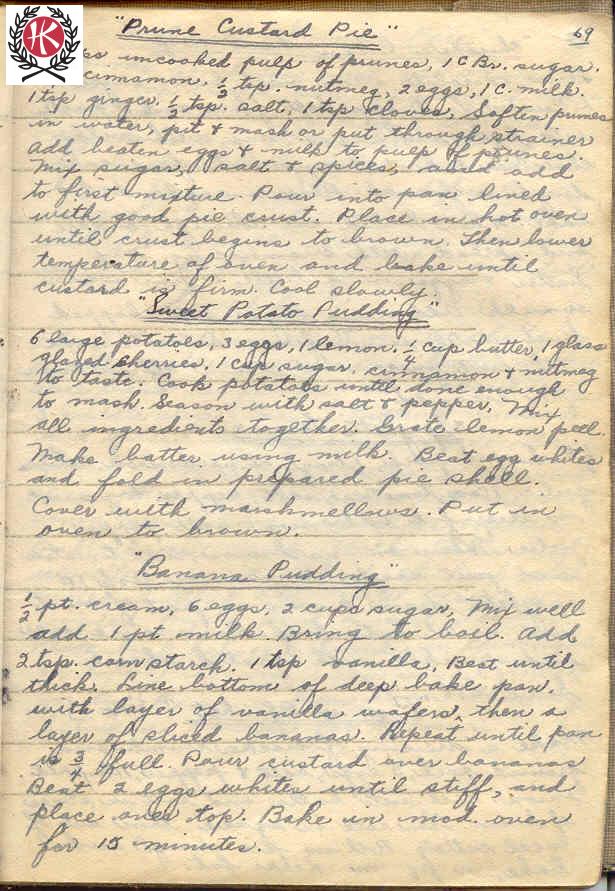 "Prune Custard Pie"
69
HK
uncooked pulp of prunes, 1 C Br. sugar.
cinnamon, ½ tsp. nutmeg, 2 eggs, 1 C. milk.
1 tsp ginger. ½ tsp. salt, 1 tsp cloves, Soften prunes
in water, pit & mash or put through strainer
Add beaten eggs & milk to pulp of prunes.
Mix sugar, salt & spices, and add
to first mixture. Pour into pan lined
with good pie crust. Place in hot oven
until crust begins to brown. Then lower
temperature of oven and bake until
custard is firm. Cool slowly.
"Sweet Potato Pudding"
6 large potatoes, 3 eggs, 1 lemon, ¼ cup butter, 1 glass
glazed cherries, 1 cup sugar, cinnamon & nutmeg
to taste. Cook potatoes until done enough
to mash. Season with salt & pepper, Mix
all ingredients together. Grate lemon peel.
Make batter using milk. Beat egg whites
and fold in prepared pie shell.
Cover with marshmellows. Put in
oven to brown.
"Banana Pudding"
½ pt. cream, 6 eggs, 2 cups sugar, Mix well
add 1 pt milk. Bring to boil. Add
2 tsp. corn starch. 1 tsp vanilla, Beat until
thick. Line bottom of deep bake pan,
with layer of vanilla wafers, then a
layer of sliced bananas. Repeat until pan
is ¾ full. Pour custard over bananas
Beat 2 eggs whites until stiff, and
place over top. Bake in mod. oven
for 15 minutes.